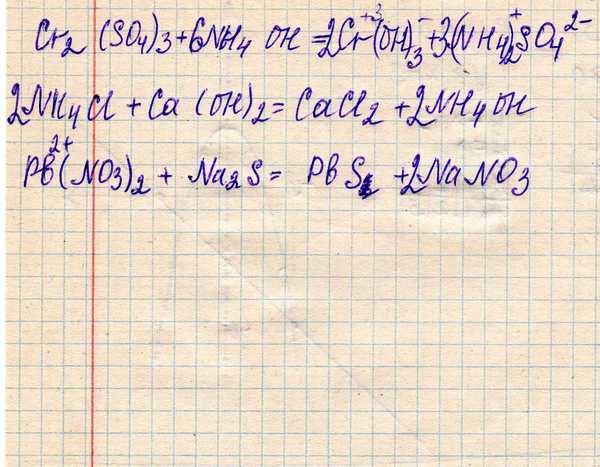 Cr₂(SO₄)₃ + 6NH₄OH = 2Cr⁺³(OH)₃⁻ + 3(NH₄)₂⁺SO₄²⁻
2NH₄Cl + Ca(OH)₂ = CaCl₂ + 2NH₄OH
Pb²⁺(NO₃)₂ + Na₂S = PbS + 2NaNO₃